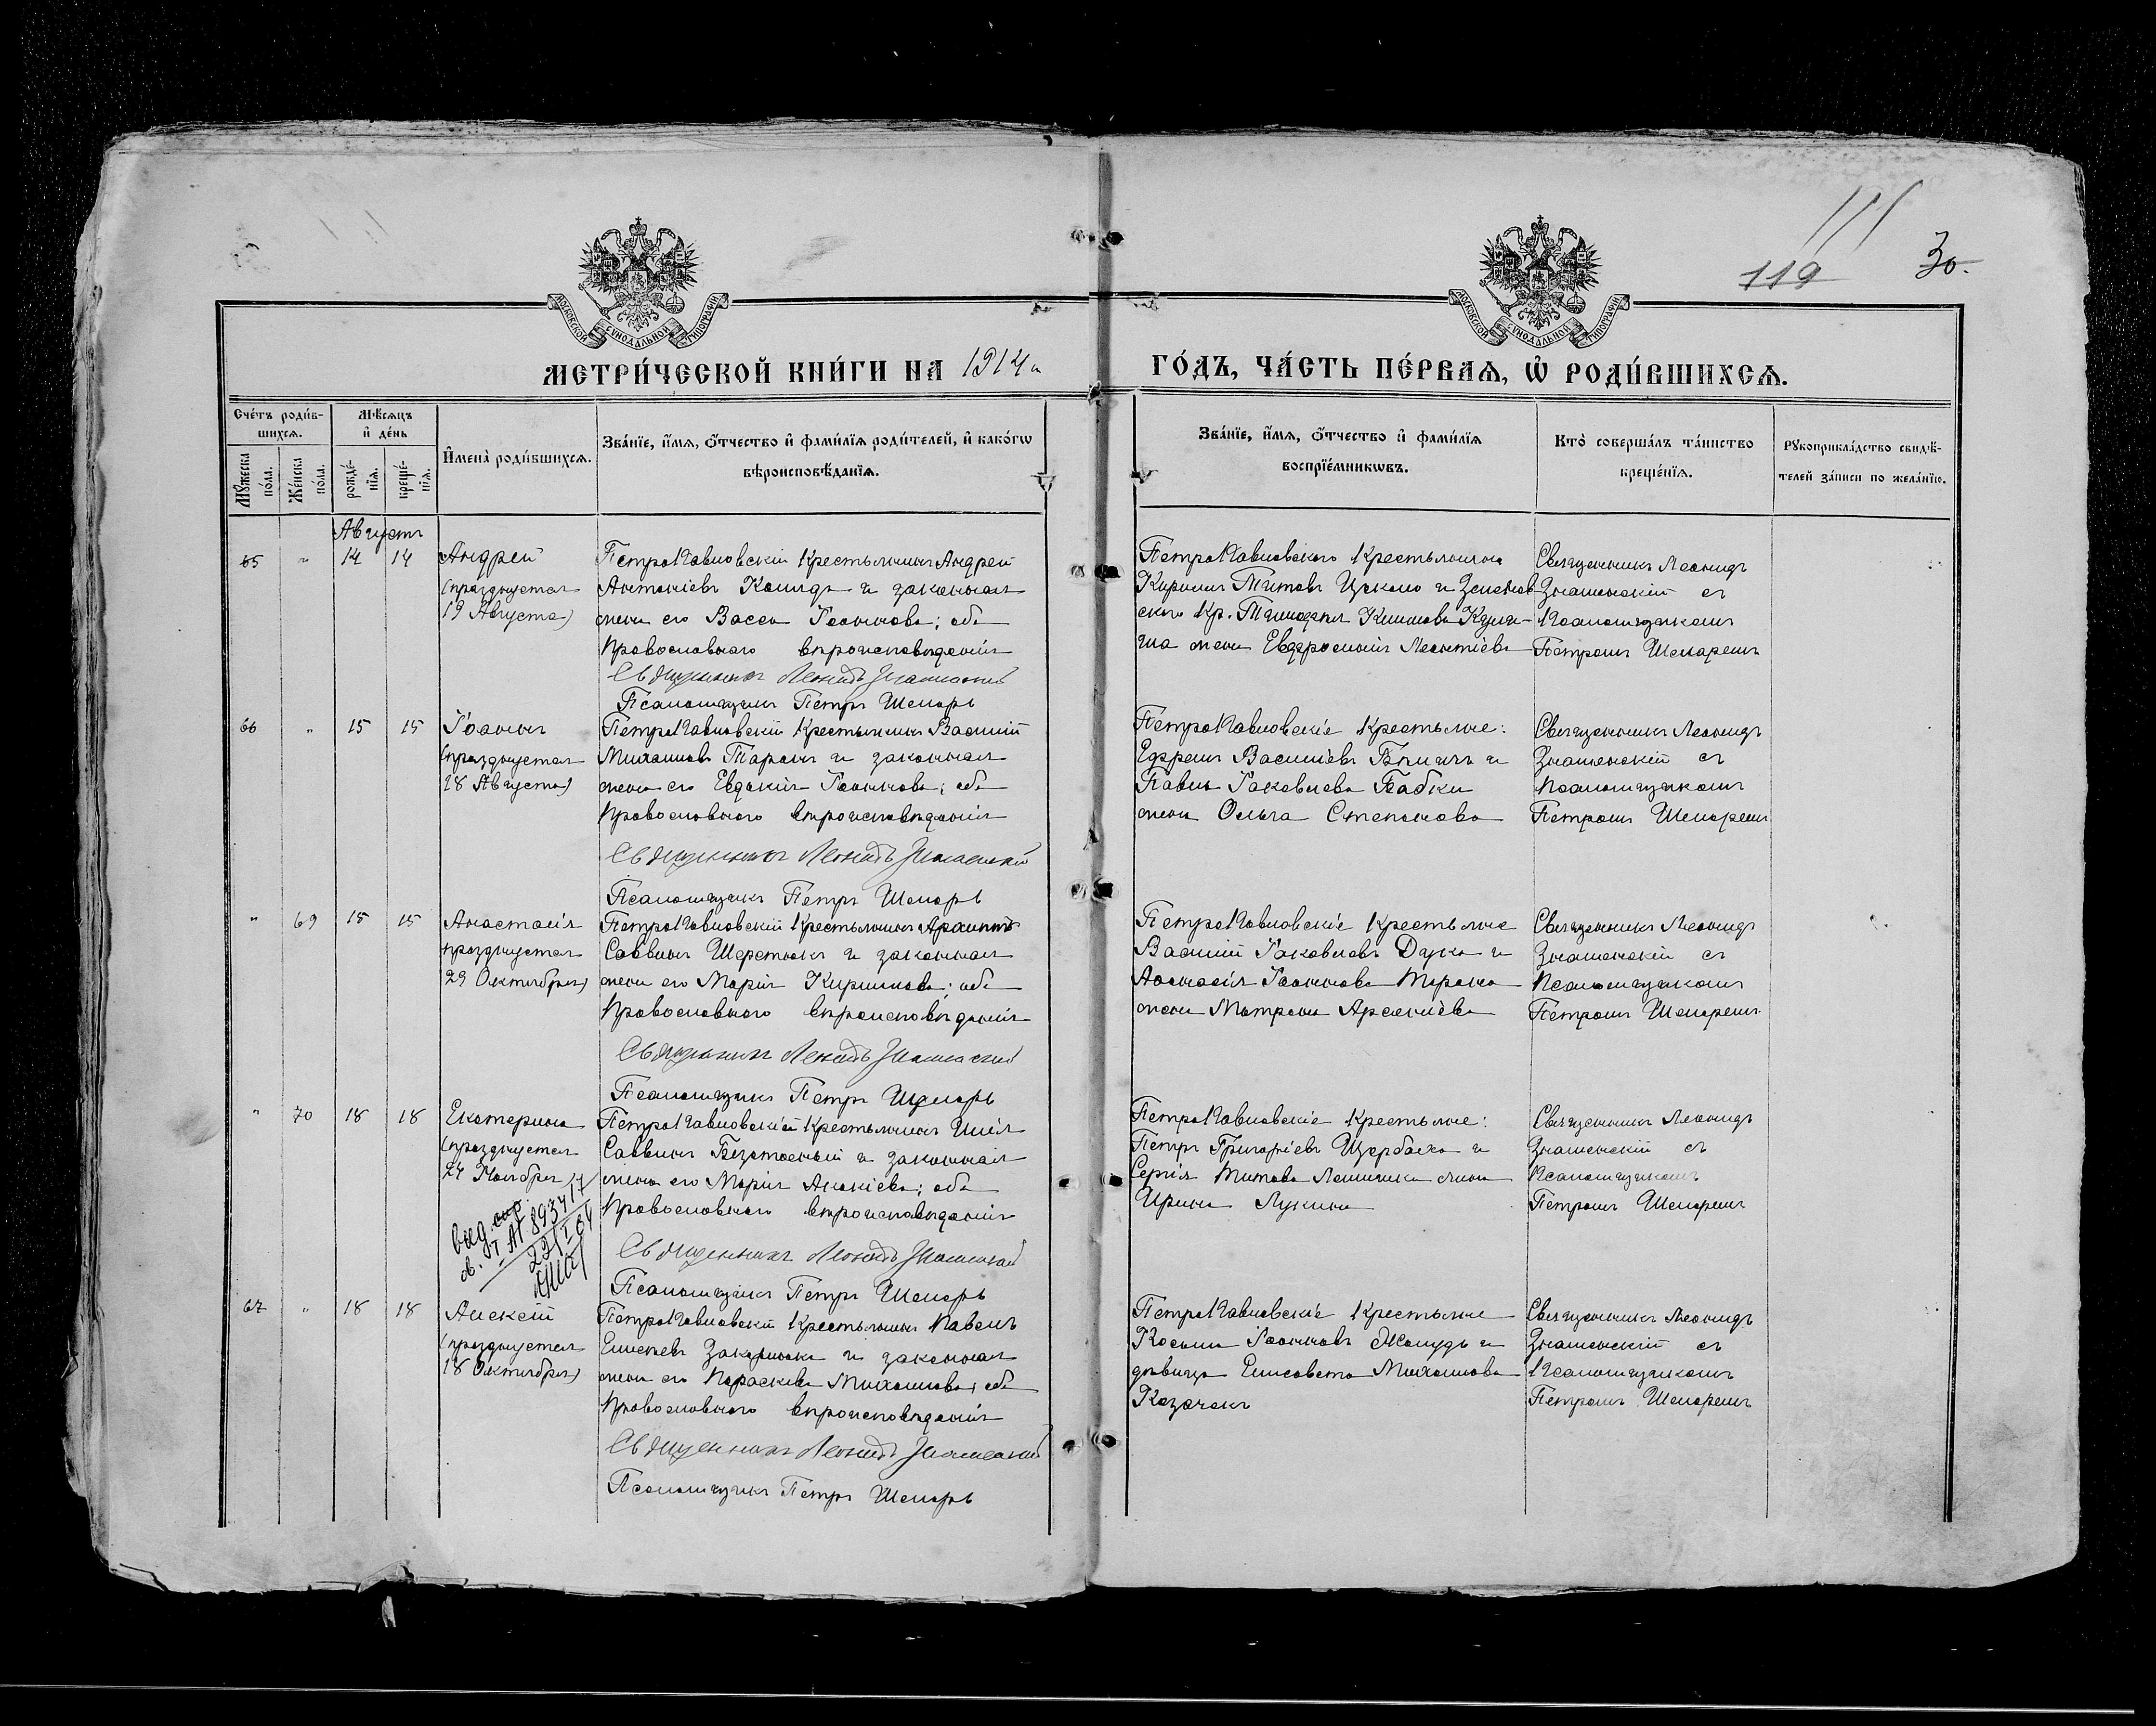 119 30.
МОСКОВСКОЙ СѴНОДАЛЬНОЙ ТИПОГРАФІИ
МОСКОВСКОЙ СѴНОДАЛЬНОЙ ТИПОГРАФІИ
МЕТРИ́ЧЕСКОЙ КНИ́ГИ НА 1914 ГО́ДЪ, ЧА́СТЬ ПЕ́РВАѦ, Ѡ҆ РОДИ́ВШИХСѦ.
Сче́тъ роди́в-
шихсѧ.
Мꙋ́жеска по́ла.
Же́нска по́ла.
Мѣ́сѧцъ
и҆ де́нь
рожде́-
нїѧ.
креще́-
нїѧ.
И҆мена̀ роди́вшихсѧ.
Зва́нїе, и҆́мѧ, ѻ҆́тчество и҆ фами́лїѧ роди́телей, и҆ како́гѡ
вѣроисповѣ́данїѧ.
Зва́нїе, и҆́мѧ, ѻ҆́тчество и҆ фами́лїѧ
воспрїе́мникѡвъ.
Кто̀ соверша́лъ та́инство
креще́нїѧ.
Рꙋкоприкла́дство свидѣ́-
телей за́писи по жела́нїю.
Августъ
65 " 14 14 Андрей
(празднуется
19 Августа)
ПетроПавловскій крестьянинъ Андрей
Антоніевъ и законная
жена его Васса Іоаннова; оба
православнаго вѣроисповѣданія
Священникъ Леонидъ Знаменскій
Псаломщикъ Петръ Шемарь
ПетроПавловскаго крестьянина
Кирилъ Титовъ и
скаго кр.
жена Евфросинія Леонтіева
Священникъ Леонидъ
Знаменскій съ
Псаломщикомъ
Петромъ Шемаремъ
66 " 15 15 Іоаннъ
(празднуется
18 Августа)
ПетроПавловскій крестьянинъ Василій
Михаиловъ Таранъ и законная
жена его Евдокія Іоаннова; оба
православнаго вѣроисповѣданія
Священникъ Леонидъ Знаменскій
Псаломщикъ Петръ Шемарь
ПетроПавловскіе крестьяне:
Ефремъ Василіевъ и
Павла Іаковлева Бабки
жена Ольга Степанова
Священникъ Леонидъ
Знаменскій съ
псаломщикомъ
Петромъ Шемаремъ
" 69 15 15 Анастасія
празднуется
29 Октября)
ПетроПавловскій крестьянинъ
Саввинъ Шерстюкъ и законная
жена его Марія Кириллова; оба
православнаго вѣроисповѣданія
Священникъ Леонидъ Знаменскій
Псаломщикъ Петръ Шемарь
ПетроПавловскіе крестьяне
Василій Іаковлевъ Дука и
Афанасія Іоаннова Тарана
жена Матрона Арсеніева
Священникъ Леонидъ
Знаменскій съ
Псаломщикомъ
Петромъ Шемаремъ
" 70 18 18 Екатерина
(празднуется
24 Ноября)
22/I
ПетроПавловскій крестьянинъ Илія
Саввинъ и законная
жена его Марія Акакіева; оба
православнаго вѣроисповѣданія
Священникъ Леонидъ Знаменскій
Псаломщикъ Петръ Шемарь
ПетроПавловскіе крестьяне:
Петръ Григоріевъ Щербаха и
Сергія Титова жена
Ирина Лукина
Священникъ Леонидъ
Знаменскій съ
Псаломщикомъ
Петромъ Шемаремъ
67 " 18 18 Алексій
(празднуется
18 Октября)
ПетроПавловскій крестьянинъ Павелъ
и законная
жена его Параскева Михаилова; оба
православнаго вѣроисповѣданія
Священникъ Леонидъ Знаменскій
Псаломщикъ Петръ Шемарь
ПетроПавловскіе крестьяне
Косьма Іоанновъ и
дѣвица Елисавета Михаилова
Козачекъ
Священникъ Леонидъ
Знаменскій съ
Псаломщикомъ
Петромъ Шемаремъ